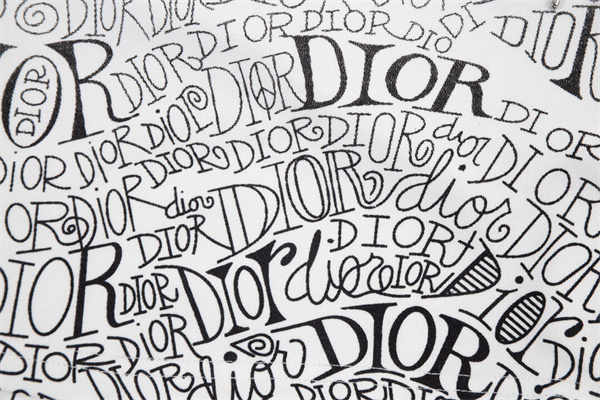 DIOR DIOR DIOR DIOR DIOR
DIOR DIOR DIOR DIOR DIOR DIOR
DIOR DIOR DIOR DIOR DIOR DIOR
DIOR DiOR DIOR DiOR DIOR DIOR DIOR dior DIOR
DIOR DIOR dior DIOR DIOR dior DIOR
DIOR DIOR DIOR DIOR dior DIOR Dior DIOR
DIOR DiOR DIOR Dior
DIOR DIOR dior DIOR DIOR DIOR DIOR